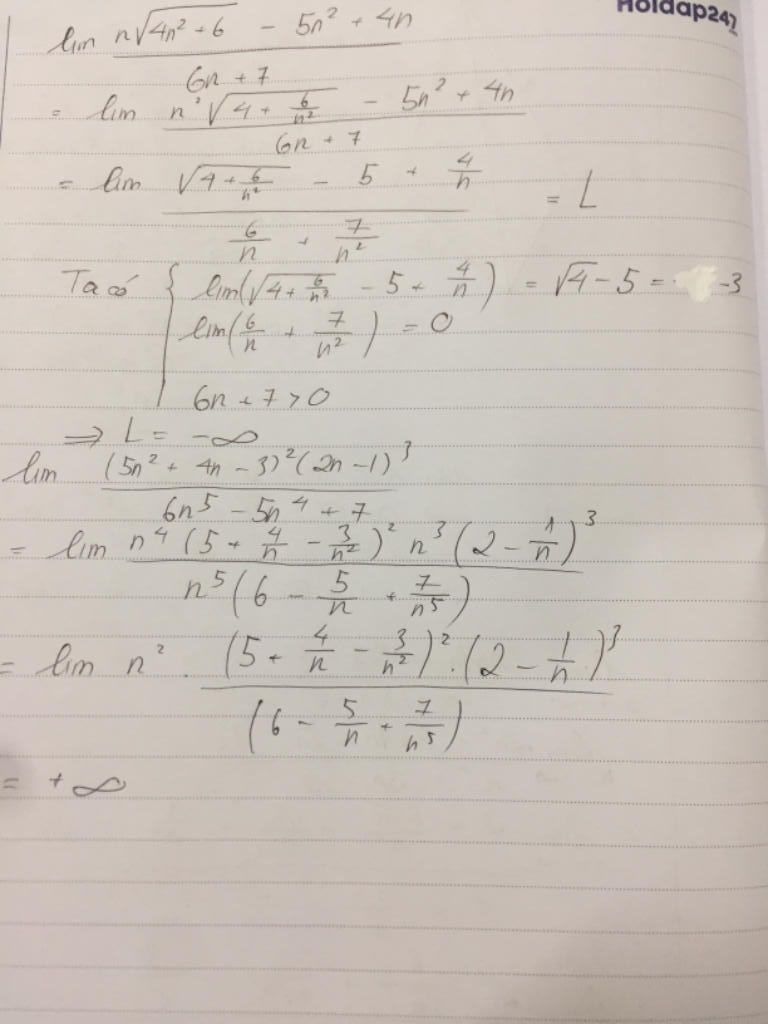 Hoidap247
lim (n√(4n² + 6) - 5n² + 4n)/(6n + 7)
= lim (n²√(4 + 6/n²) - 5n² + 4n)/(6n + 7)
= lim (√(4 + 6/n²) - 5 + 4/n)/(6/n + 7/n²) = L
Ta có { lim(√(4 + 6/n²) - 5 + 4/n) = √4 - 5 = -3
lim(6/n + 7/n²) = 0
6n + 7 > 0
⇒ L = -∞
lim ((5n² + 4n - 3)²(2n - 1)³)/(6n⁵ - 5n⁴ + 7)
= lim (n⁴(5 + 4/n - 3/n²)² n³(2 - 1/n)³)/(n⁵(6 - 5/n + 7/n⁵))
= lim n² . ((5 + 4/n - 3/n²)² . (2 - 1/n)³)/((6 - 5/n + 7/n⁵))
= +∞